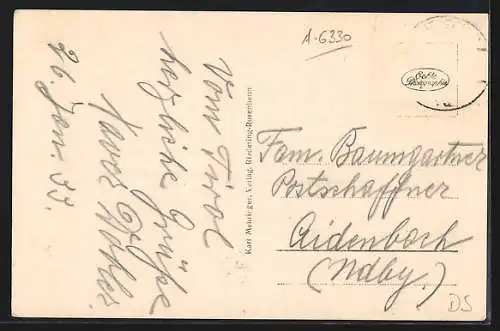 A-6330
Vom Tirol
herzliche Grüße
Xaver
26. Jan. 33.
Karl Mehringer, Verlag, Riedering-Rosenheim
Echte
Photographie
Fam. Baumgartner
Postschaffner
Aidenbach
(Ndby.)
DS